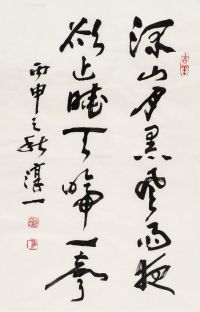 深山月黑風雨夜
欲近曉天啼一聲
丙申之秋淳一